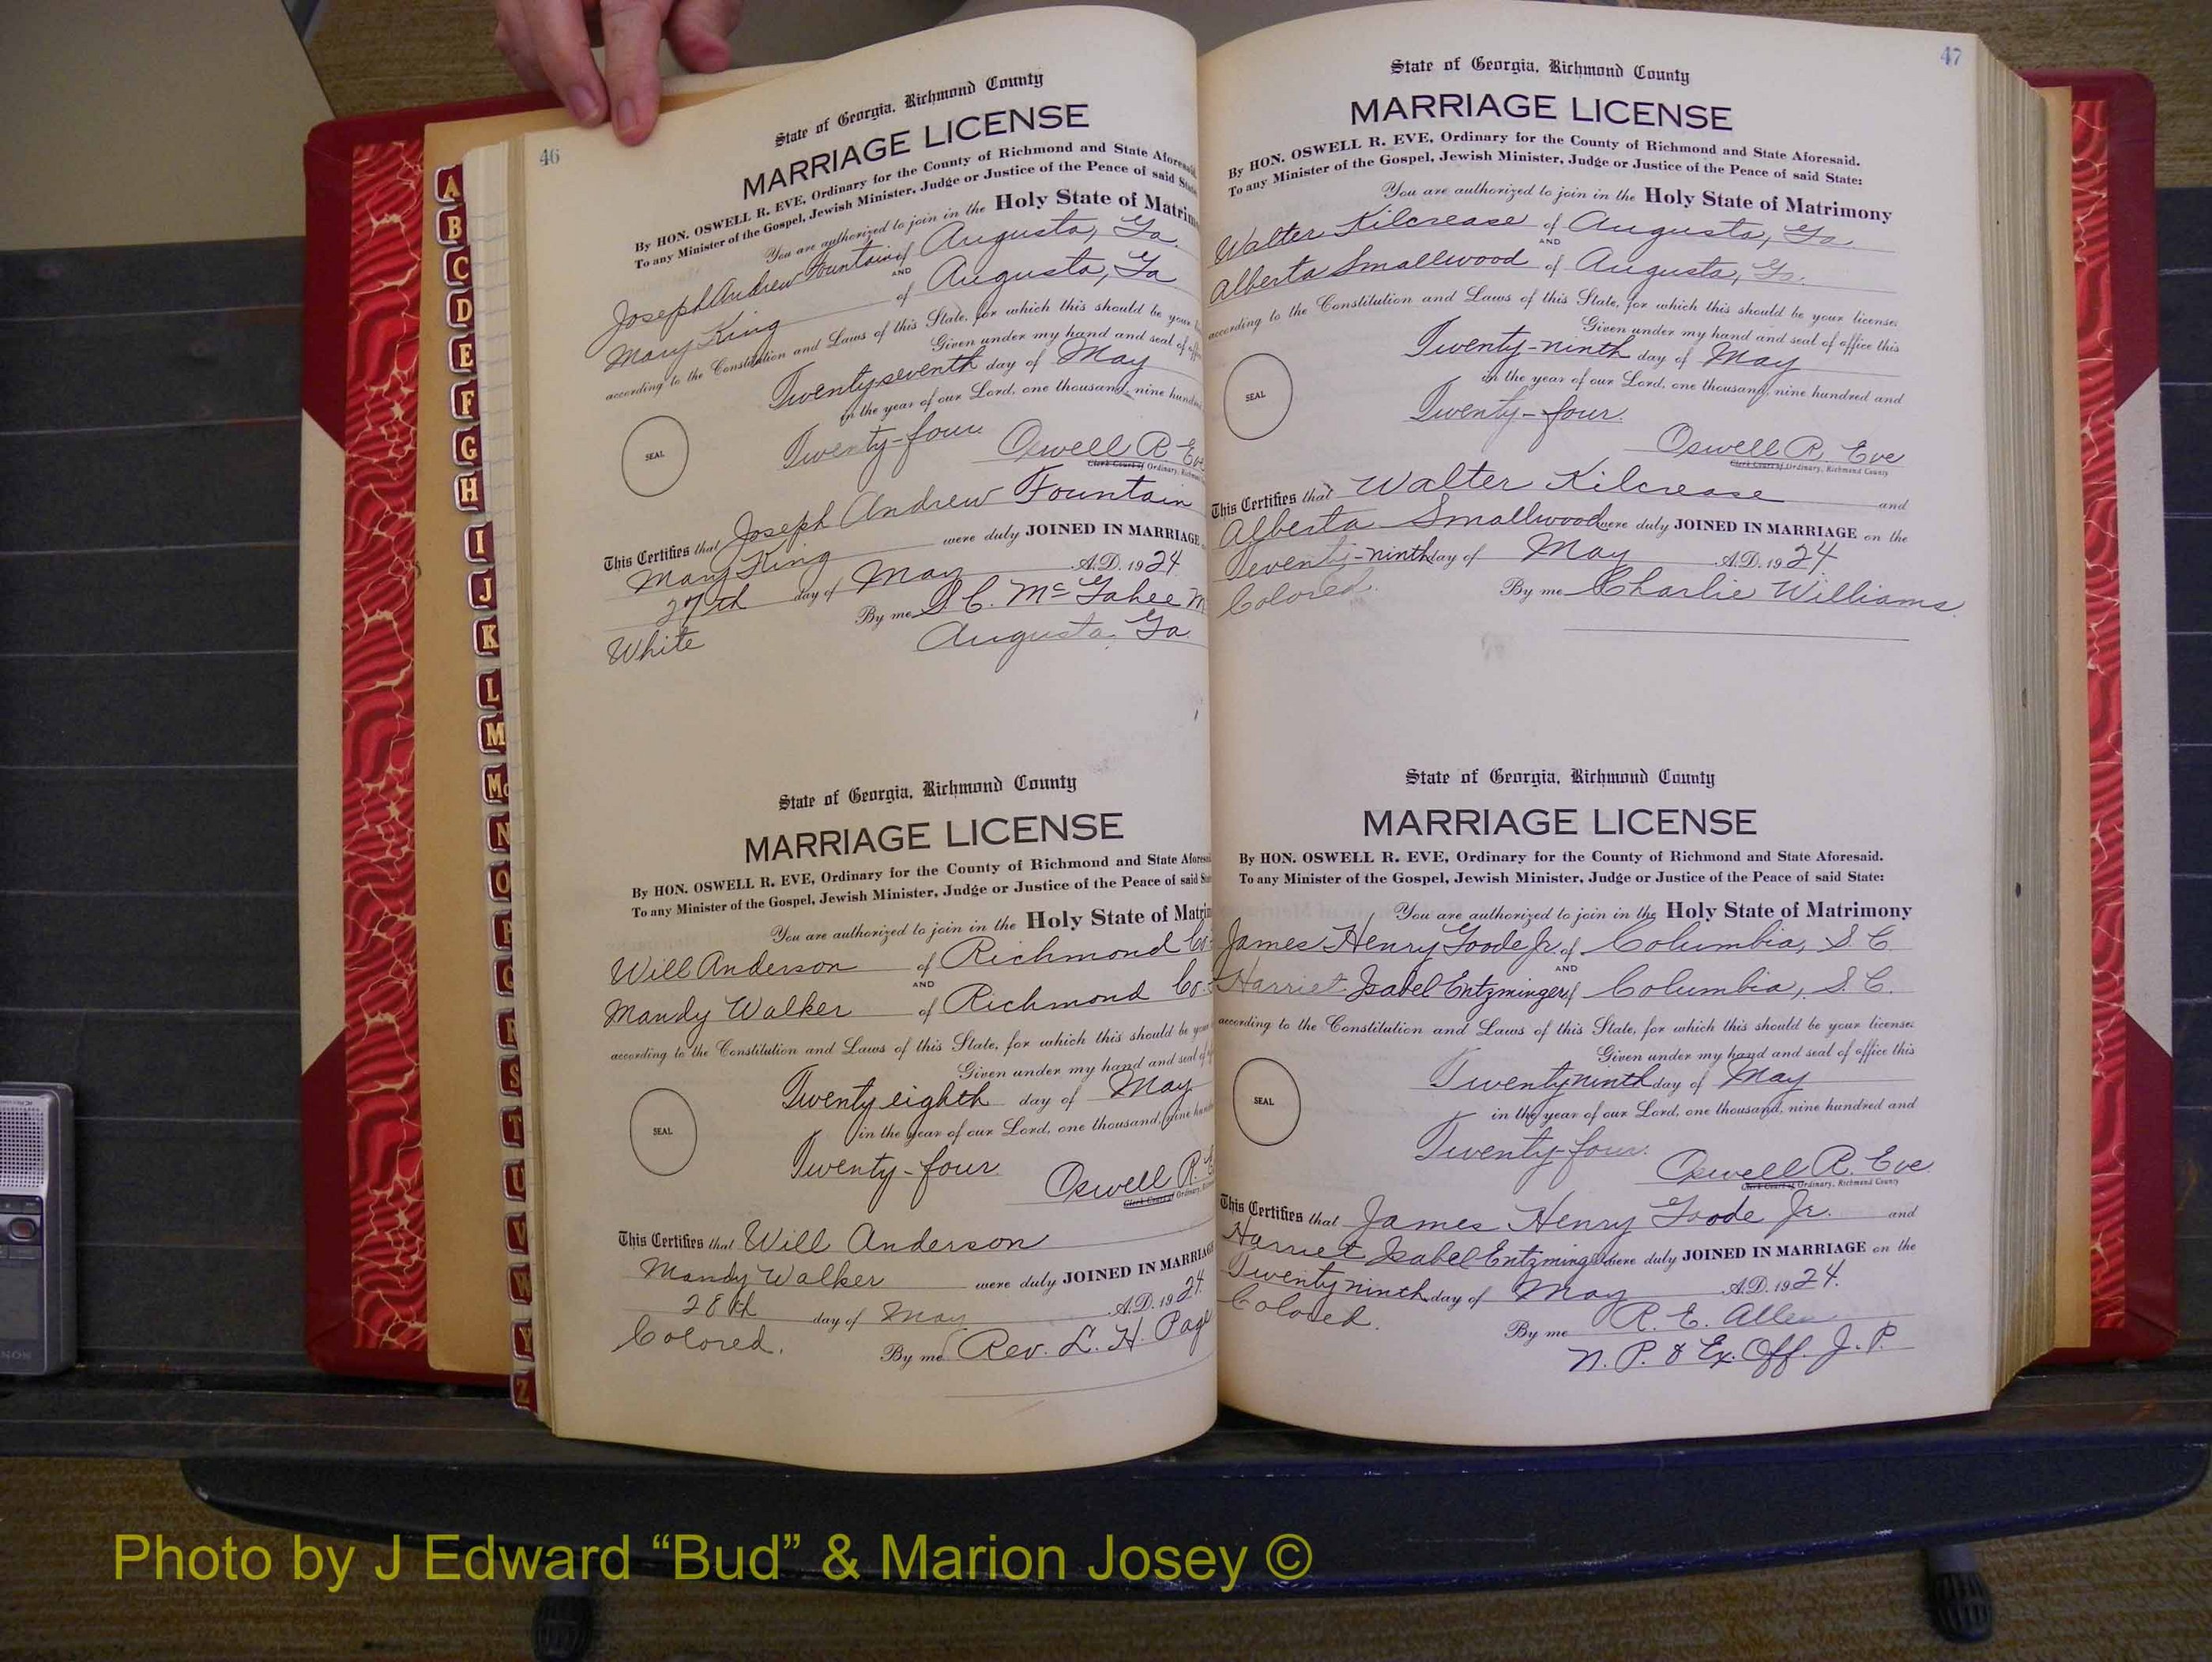 46
State of Georgia, Richmond County
MARRIAGE LICENSE
By HON. OSWELL R. EVE, Ordinary for the County of Richmond and State Aforesaid.
To any Minister of the Gospel, Jewish Minister, Judge or Justice of the Peace of said State
You are authorized to join in the Holy State of Matrim
Joseph Andrew Fountain of Augusta, Ga.
AND
Mary King of Augusta, Ga
according to the Constitution and Laws of this State, for which this should be your
Given under my hand and seal of office
Twenty seventh day of May
in the year of our Lord, one thousand, nine hundred
SEAL
Twenty-four
Oswell R. Eve
Clerk Court of Ordinary, Richmond
This Certifies that Joseph Andrew Fountain
Mary King were duly JOINED IN MARRIAGE
27th day of May A.D. 1924
By me S. C. McGahee M
White
Augusta, Ga
State of Georgia, Richmond County
MARRIAGE LICENSE
By HON. OSWELL R. EVE, Ordinary for the County of Richmond and State Aforesaid
To any Minister of the Gospel, Jewish Minister, Judge or Justice of the Peace of said State
You are authorized to join in the Holy State of Matrim
Will Anderson of Richmond Co.
AND
Mandy Walker of Richmond Co.
according to the Constitution and Laws of this State, for which this should be your
Given under my hand and seal of
Twenty eighth day of May
in the year of our Lord, one thousand, nine hundred
SEAL
Twenty-four
Oswell R. E
Clerk Court of Ordinary,
This Certifies that Will Anderson
Mandy Walker were duly JOINED IN MARRIAGE
28th day of May A.D. 1924
Colored.
By me Rev. L. H. Page
47
State of Georgia, Richmond County
MARRIAGE LICENSE
By HON. OSWELL R. EVE, Ordinary for the County of Richmond and State Aforesaid.
To any Minister of the Gospel, Jewish Minister, Judge or Justice of the Peace of said State:
You are authorized to join in the Holy State of Matrimony
Walter Kilcrease of Augusta, Ga.
AND
Alberta Smallwood of Augusta, Ga.
according to the Constitution and Laws of this State, for which this should be your license:
Given under my hand and seal of office this
Twenty-ninth day of May
in the year of our Lord, one thousand, nine hundred and
SEAL
Twenty-four.
Oswell R. Eve
Clerk Court of Ordinary, Richmond County
This Certifies that Walter Kilcrease and
Alberta Smallwood were duly JOINED IN MARRIAGE on the
Twenty-ninth day of May A.D. 1924.
Colored.
By me Charlie Williams
State of Georgia, Richmond County
MARRIAGE LICENSE
By HON. OSWELL R. EVE, Ordinary for the County of Richmond and State Aforesaid.
To any Minister of the Gospel, Jewish Minister, Judge or Justice of the Peace of said State:
You are authorized to join in the Holy State of Matrimony
James Henry Goode Jr. of Columbia, S.C.
AND
Harriet Isabel Entzminger of Columbia, S.C.
according to the Constitution and Laws of this State, for which this should be your license:
Given under my hand and seal of office this
Twenty ninth day of May
in the year of our Lord, one thousand, nine hundred and
SEAL
Twenty-four.
Oswell R. Eve
Clerk Court of Ordinary, Richmond County
This Certifies that James Henry Goode Jr. and
Harriet Isabel Entzminger were duly JOINED IN MARRIAGE on the
Twenty ninth day of May A.D. 1924.
Colored.
By me R. E. Allen
N. P. & Ex. Off. J. P.
A
B
C
D
E
F
G
H
I
J
K
L
M
Mc
N
O
P
Q
R
S
T
U
V
W
Y
Z
Photo by J Edward “Bud” & Marion Josey ©